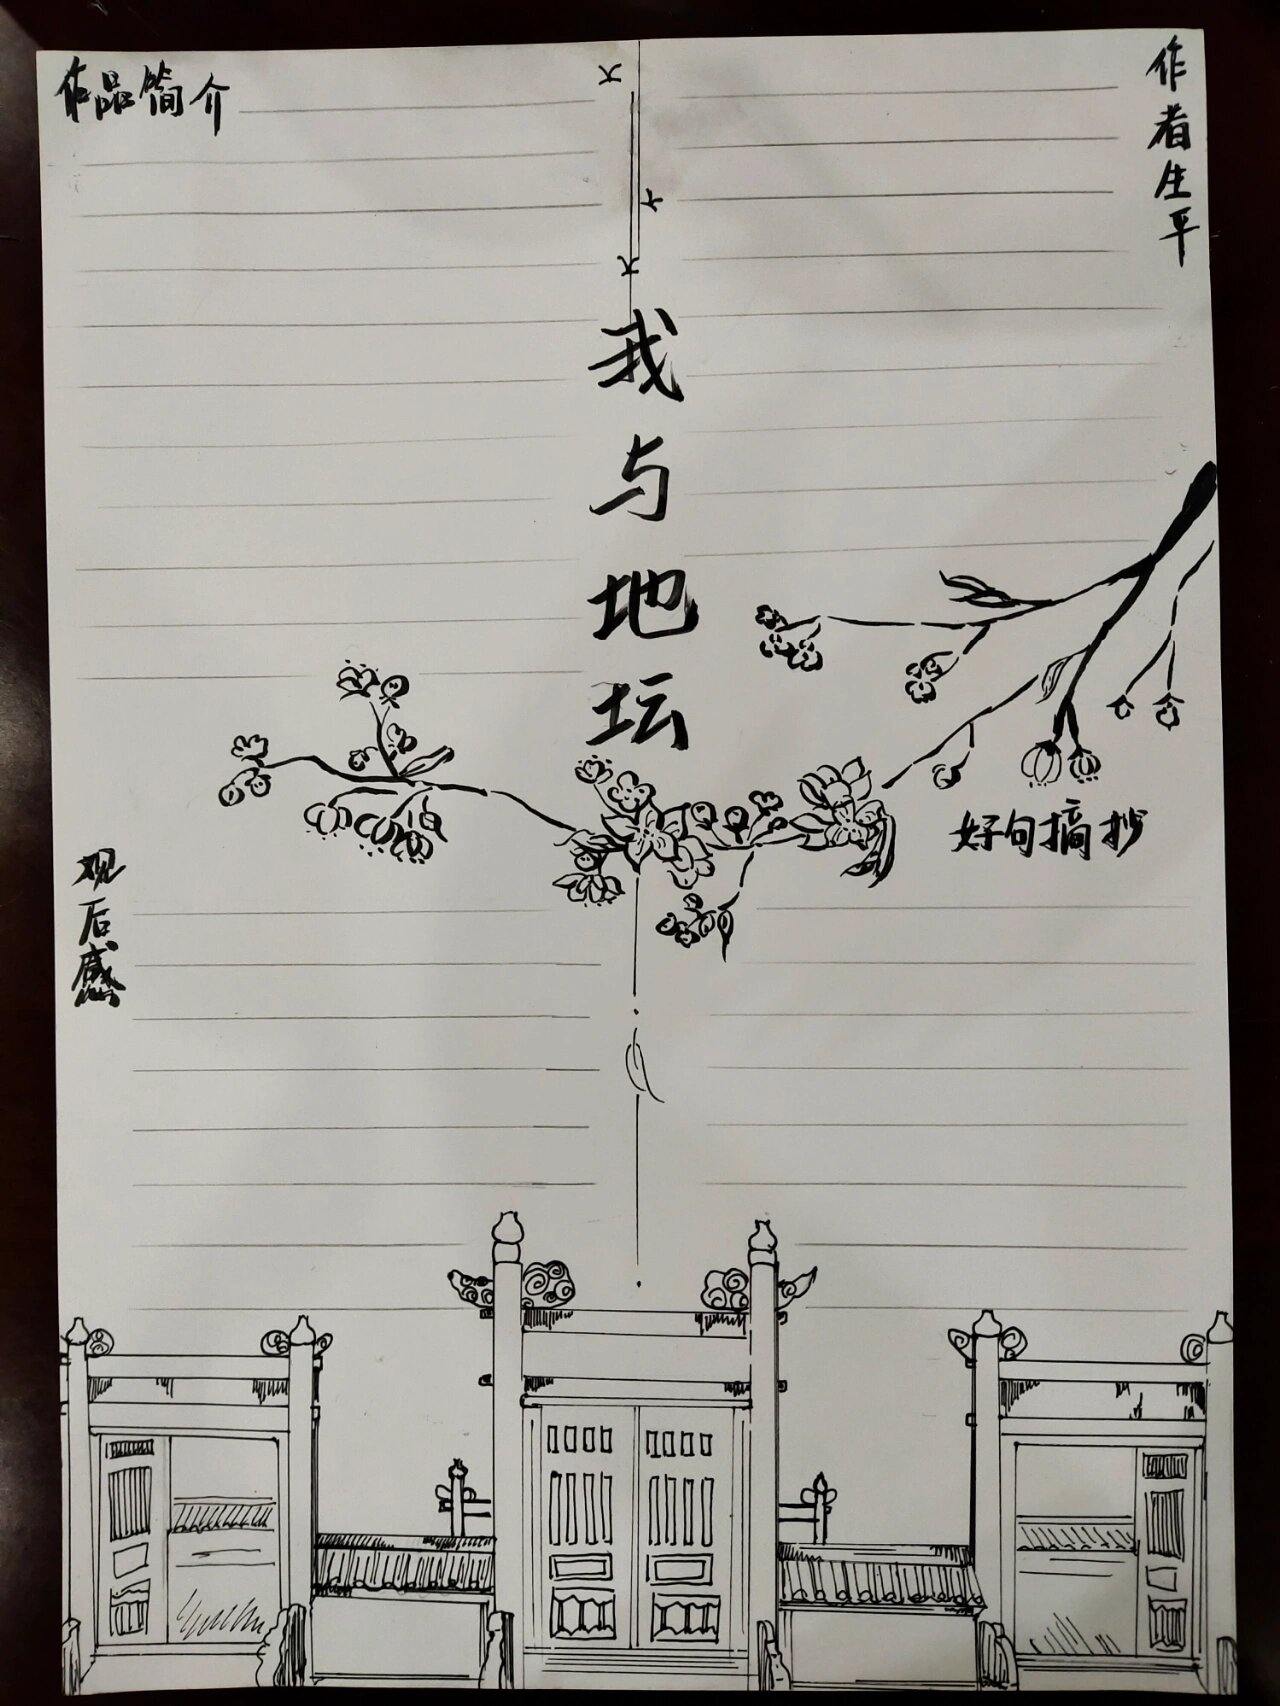 作品简介
作者生平
我与地坛
好句摘抄
观后感